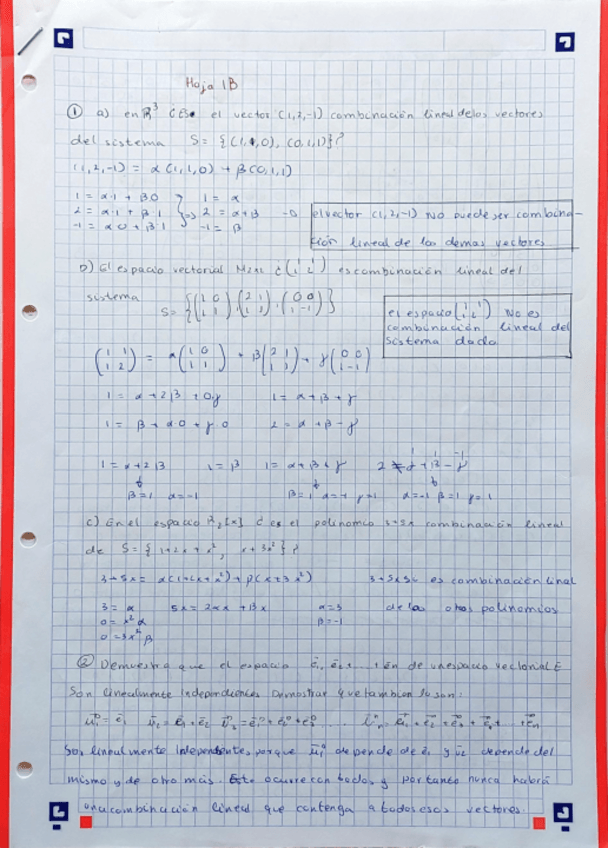 Hoja 1B
① a) en R³ ¿Es el vector (1,2,-1) combinación lineal de los vectores
del sistema S = {(1,1,0), (0,1,1)}?
(1,2,-1) = α(1,1,0) + β(0,1,1)
1 = α·1 + β0 1 = α
2 = α·1 + β·1 => 2 = α+β
-1 = α0 + β·1 -1 = β
el vector (1,2,-1) NO puede ser combina-
ción lineal de los demas vectores
b) El espacio vectorial M2x2 ¿(1 1 / 1 2) es combinación lineal del
sistema S= {(1 0 / 1 1), (2 1 / 1 1), (0 0 / 1 -1)}
el espacio No es
combinación lineal del
sistema dado
(1 1 / 1 2) = α(1 0 / 1 1) + β(2 1 / 1 1) + γ(0 0 / 1 -1)
1 = α+2β+0γ 1 = α+β+γ
1 = β+α·0+γ·0 2 = α+β-γ
1 = α+2β 1=β 1= α+β+γ
β=1 α=-1 β=1 α=-1 γ=1 α=-1 β=1 γ=1
c) En el espacio [x] ¿es el polinomio 3+5x combinación lineal
de S= {1+2x+x², x+3x²}?
3+5x = α(1+2x+x²)+β(x+3x²) es combinación linal
3 = α 5x = 2αx + βx α=3 de los otros polinomios
0 = x²α β=-1
0 = 3x²β
② Demuestra que el espacio de un espacio vectorial E
Son linealmente independientes Demostrar que tambien lo son:
Son linealmente independentes, porque depende de y depende del
mismo y de otro más. Esto ocurre con todos y por tanto nunca habrá
una combinación lineal que contenga a todos esos vectores.